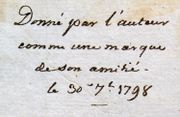 Donné par l'auteur
comme une marque
de son amitié.
le 30 7.^t 1798